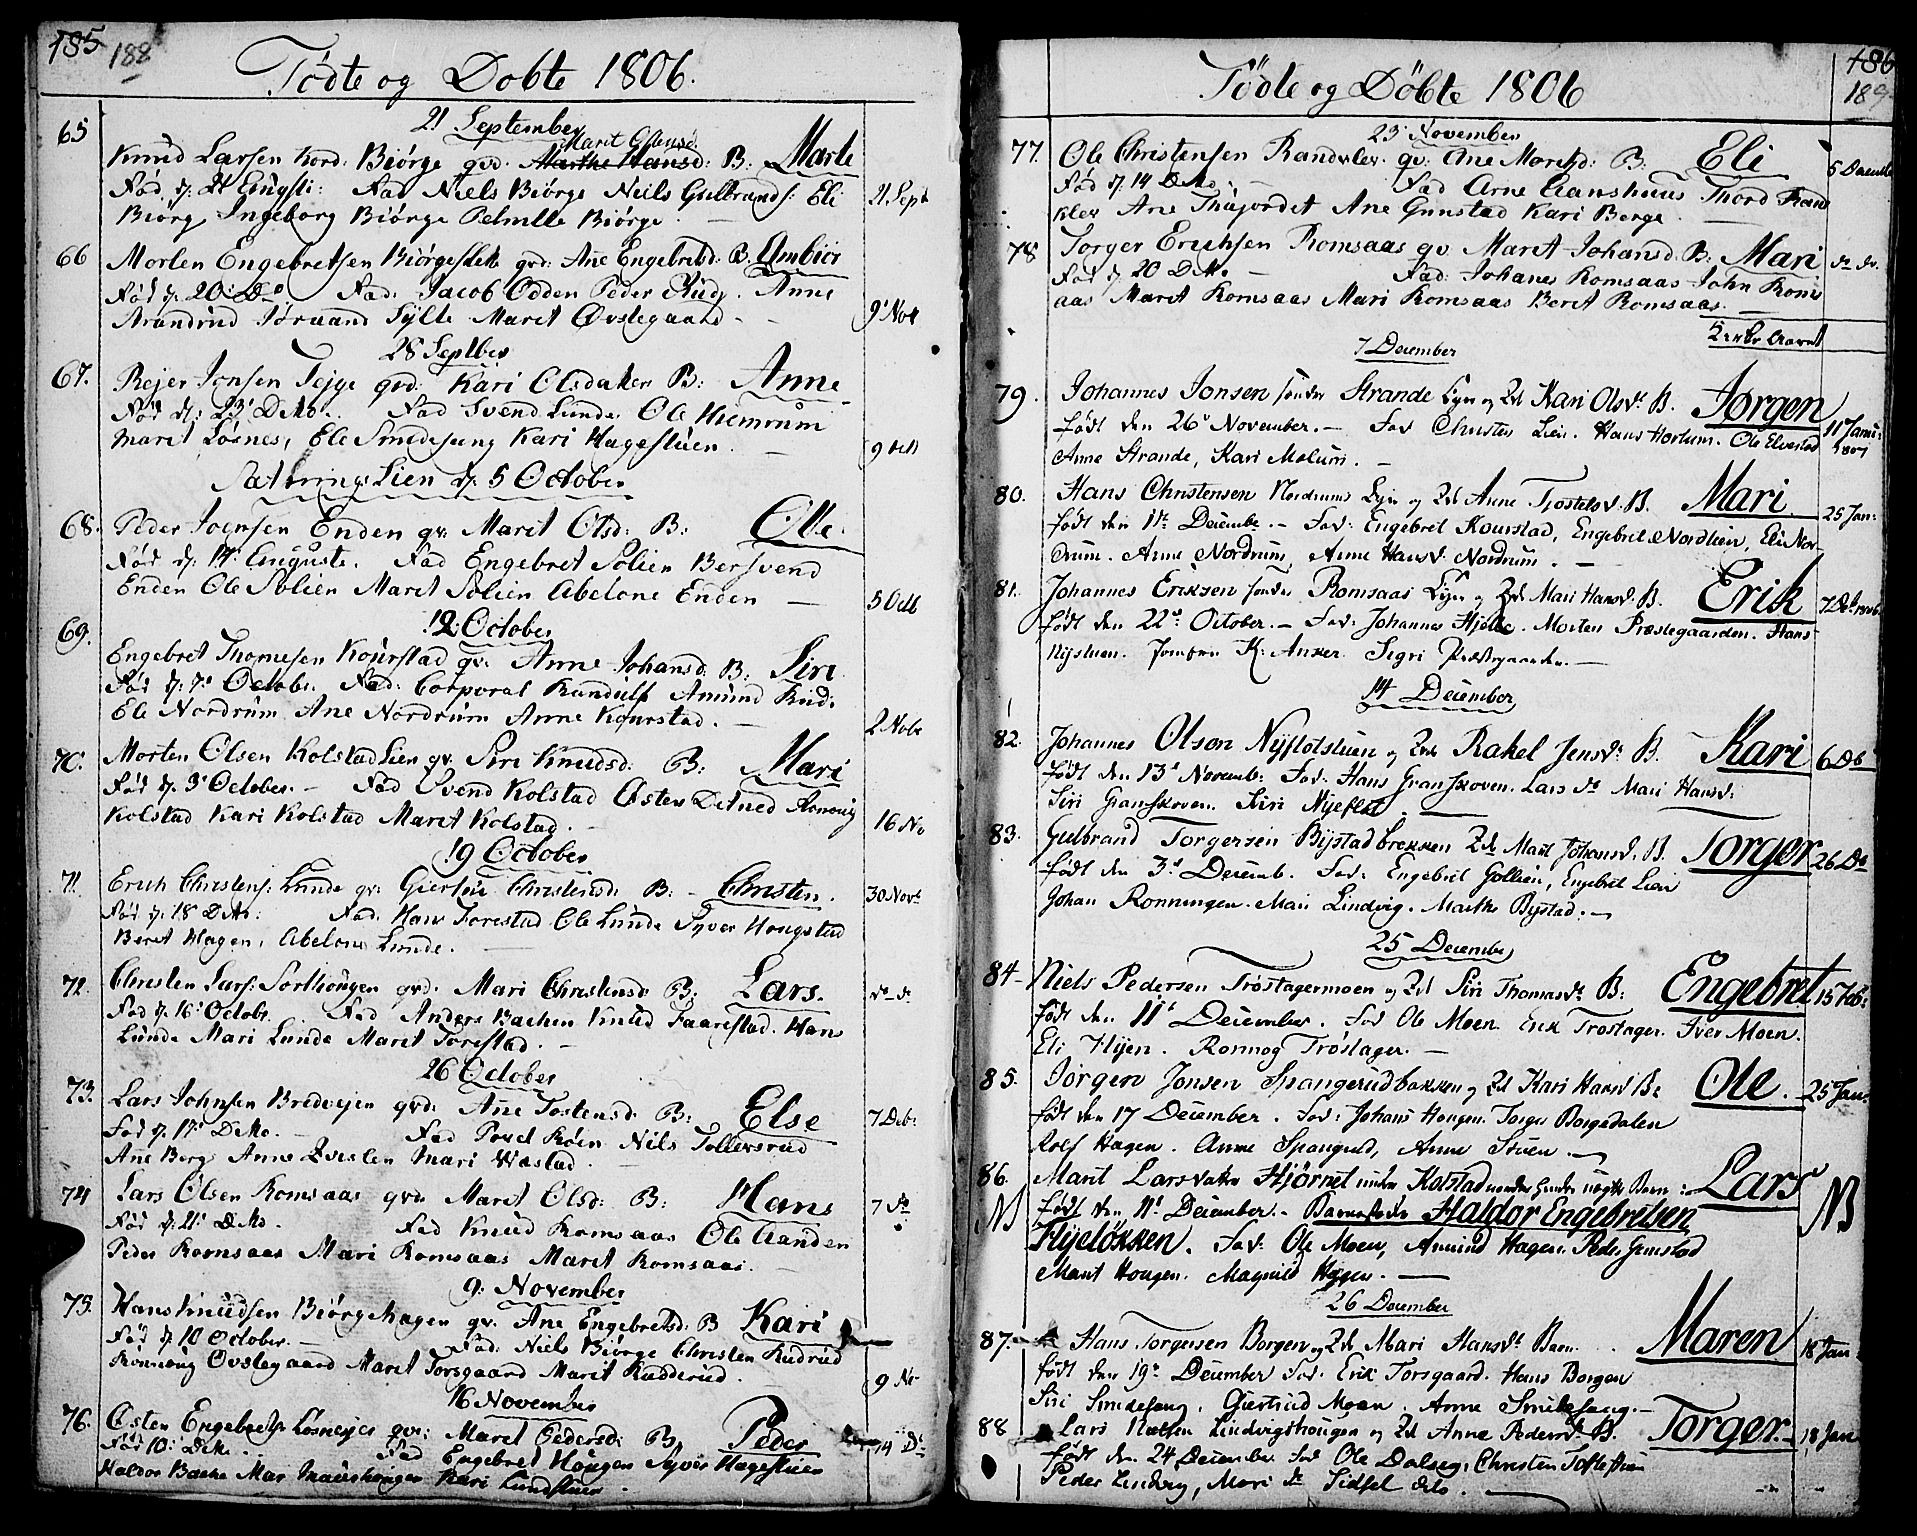 185 188
Fødte og Døbte 1806.
21 September
Marit Olensd.
65 Knud Larsen Nord: Biørge qvd. Marthe Hansd: B: Marte
Fød d: 21 Augsti: Fad Niels Biørge Niels Gulbrands: Eli 21 Sept
Biørg Ingeborg Biørge Pelnille Biørge
66 Morten Engebretsen Biørgeslet qvd: Ane Engebretsd: B. Ambiør
Fød d. 20: Do Fad: Jacob Odden Peder Rudj. Anne
Jørand Sylte Maret Øvstegaard 9 Nov
28 Septber
67. Rejer Jonsen Tejge qvd: Kari Olsdater B: Anne
Fød d: 23 DMo. Fad Svend Lunde Ole
Marit Løsnes, Ele Smedesung Kari Hagestuen 9 Octb
Sætnings Lien d. 5 October
68. Peder Joensen Enden qv: Maret Olsd: B: Olle
Fød d: 14 Auguste. Fad Engebret Solien Bersvend
Enden Ole Solien Maret Solien Abelone Enden 5 Octb
12 October
69. Engebret Thomesen Kourstad qv: Anne Johansd: B: Siri
Fød d: 7 Octobr. Fad: Corporal Randulf Amund Rud:
Ele Nordrum Ane Nordrum Anne Kourstad. 2 Nobr
70. Morten Olsen Kolstad Lien qv. Siri Knudsd: B: Mari
Fød d. 3 October. Fad Svend Kolstad Østen Detned Ronnoug
Kolstad Kari Kolstad Maret Kolstad. 16 No
19 October
71. Erich Christens: Lunde qv: Giertru Christensd: B: Christen. 30 Novr
Fød d. 18 DMo: Fad: Hans Forestad Ole Lunde Syver Hougstad
Beret Hagen, Abelone Lunde.
72. Christen Lars: Sorthougen qvd: Mari Christensd B: Lars. do do
Fød d. 16 Octobr. Fad Anders Bachen Knud Faarestad. Han
Lunde Mari Lunde Maret Forestad.
26 October
73. Lars Johnsen Bredvejen qvd: Ane Tostensd: B: Else 7 Deb:
Fød d. 17 DMo. Fad Povel Røen Nils Tollersrud
Ane Berg Anne Mari Wastad
74 Lars Olsen Romsaas qvd: Maret Olsd: B: Hans 7 Do
Fød d. 21 DMo. Fad Knud Romsaas Ole Aanden
Peder Romsaas Mari Romsaas Maret Romsaas.
9. November
75. Hans Knudsen Biørge Hagen qv. Ane Engebretsd: B Kari
Fød d. 10 October. Fad: Niels Biørge Christen Rudrud
Rønnoug Øvstegaard Maret Forsgaard Marit Rudderud. 9 No
16 November
76. Østen Engebretsen qv: Maret Pedersd: B Peder 14 Do
Fød 10: DMo. Fad Engebret Hougen Syver Hagestuen
Haldor Backe Mar Kari Lundstuen.
186 189
Fødte og Døbte 1806
23 November
77. Ole Christensen Randklev. qv: Ane Moretsd: B. Eli 5 December
Fød d. 14 DMo. Fad Arne Aanshuus Thord Ran
klev Ane Thujordet Ane Gunstad Kari Berge.
78 Torger Erichsen Romsaas qv Maret Johansd. B: Mari do do.
Fød d 20 DMo. Fad: Johanes Romsaas John Roms
aas Maret Romsaas Mari Romsaas Beret Romsaas.
7 December
79. Johannes Jonsen sønder Strande Lyn og Zdt Kari Olsd. B. Jørgen
født den 26 November. Fad Christen Lien. Hans Hortum. Ole Elvestad 11 Janu: 1807
Anne Strande, Kari Molum.
80. Hans Christensen Nordrum Lyn og Zdt Anne Tjostelsd. B. Mari 25 Jan:
født den 1te Decembr. Fad: Engebret Kourstad, Engebret Nordlien, Eli Nor
drum. Anne Nordrum, Anne Hansd. Nordrum.
81. Johannes Eriksen sønder Romsaas Lyn og Zdt Mari Hansd. B. Erik
født den 22 October. Fad: Johannes Hjelle. Morten Præstegaarden. Hans
Nystuen. Jomfru K: Anker Sigri Præstegaarden.
14 December
82. Johannes Olsen Nyslotstuen og Zdt Rakel Jensd. B. Kari 6 Db
født den 13 Novemb: Fad: Hans Granskoven. Lars do Mari Hansd:
Siri Granskoven. Siri
83. Gulbrand Torgersen Bystadbrekken Zdt Marit Johansd. B. Torger 26 Do
født den 3 Decemb. Fad: Engebret Gollien, Engebret Lien
Johan Ronningen. Mari Lindvig. Marthe Bystad.
25 December
84 Niels Pedersen Trøstagermoen og Zdt Siri Thomasdr B: Engebret 15 Feb:
født den 11 December. Fad Ole Moen Erik Trøstager. Iver Moen.
Eli Flyen. Ronnog Trøstager.
85. Jørgen Jonsen Spangrudbakken og Zdt Kari Hansd B: Ole. 25 Jan.
født den 17 December. Fad: Johans Hougen. Torger Borgedalen
Rolf Hagen. Anne Spangrud, Anne Stuen
86. Marit Larsdater Hjørnet under Kolstad uægte Barn: Lars
NB født den 11 December. Barnefader Haldor Engebretsen NB
Flyeløkken. Fad: Ole Moen, Amund Hagen. Peder Gunstad
Marit Hougen. Magnild Hagen.
26 December
87. Hans Torgersen Borgen og Zdt Mari Hansdr Barn Maren 18 Jan
født den 19 December Fad. Erik Forsgaard. Hans Borgen
Siri Smedesang. Giertrud Moen. Anne Smedesang.
88 Lars Lindvigshougen og Zdt Anne Pedersd. B. Torger. 18 Jan
født den 24 December. Fad Ole Dalseg, Christen Toftestuen
Peder Lindvig, Mari do Sidsel dito.